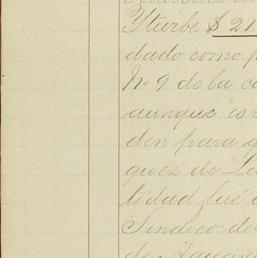 Yturbe $ 21.
dado como p
No 9 de la c
aunque es
den para q
quez de Le
tidad fué
Síndico de
de Aguas